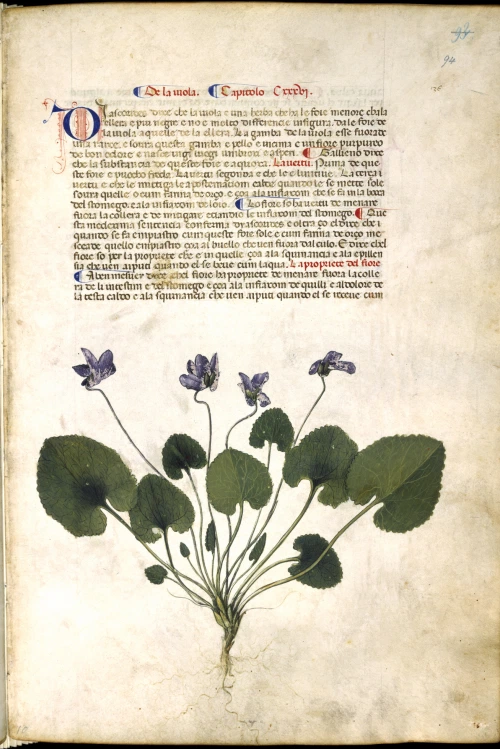 94
94
De la uiola. Capitolo Cxxxvj.
Diascorides dixe che la uiola una herba che ha le foie menore cha la
ellera e piu nigre e no e molto differencie in figura dale foie de
la uiola a quelle de la ellera. La gamba de la uiola esse fuora de
una raixe, e soura questa gamba e pello e in cima e un fiore purpureo
de bon odore e nasce in gi luogi umbrioxi e aspri. Galieno dixe
che la substancia de queste foie e aquoxa. La uertu. Prima de que
ste foie e pocho freda. La uertu segonda e che le e lenitiue. La terça
uertu e che le mitiga le apostemacion calde quando le se mette sole
soura quelle o cum farina de orço e çoa ala inflacion che se fi in la bocha
del stomego. e ala inflacion de lo oio. Lo fiore so ha uertu de menare
fuora la collera e de mitigare etiamdio le inflacion del stomego. Que
sta medexima sentencia conferma diascorides e oltra ço el dixe che i
quando se fa empiastro cum queste foie sole e cum farina de orço me
scedade quello empiastro çoa al buello che uen fuora dal culo. E dixe che l
fiore so per la propriete che e in quelle çoa ala squinancia e ala epillen
sia che uen ai puti quando el se beue cum laqua. La propriete del fiore
Aben mesuer dixe che l fiore ha propriete de menare fuora la colle
ra de li intestini e del stomego e çoa ala inflacion de quilli e al dolore de
la testa caldo e ala squinancia che uen ai puti quando el se receue cum